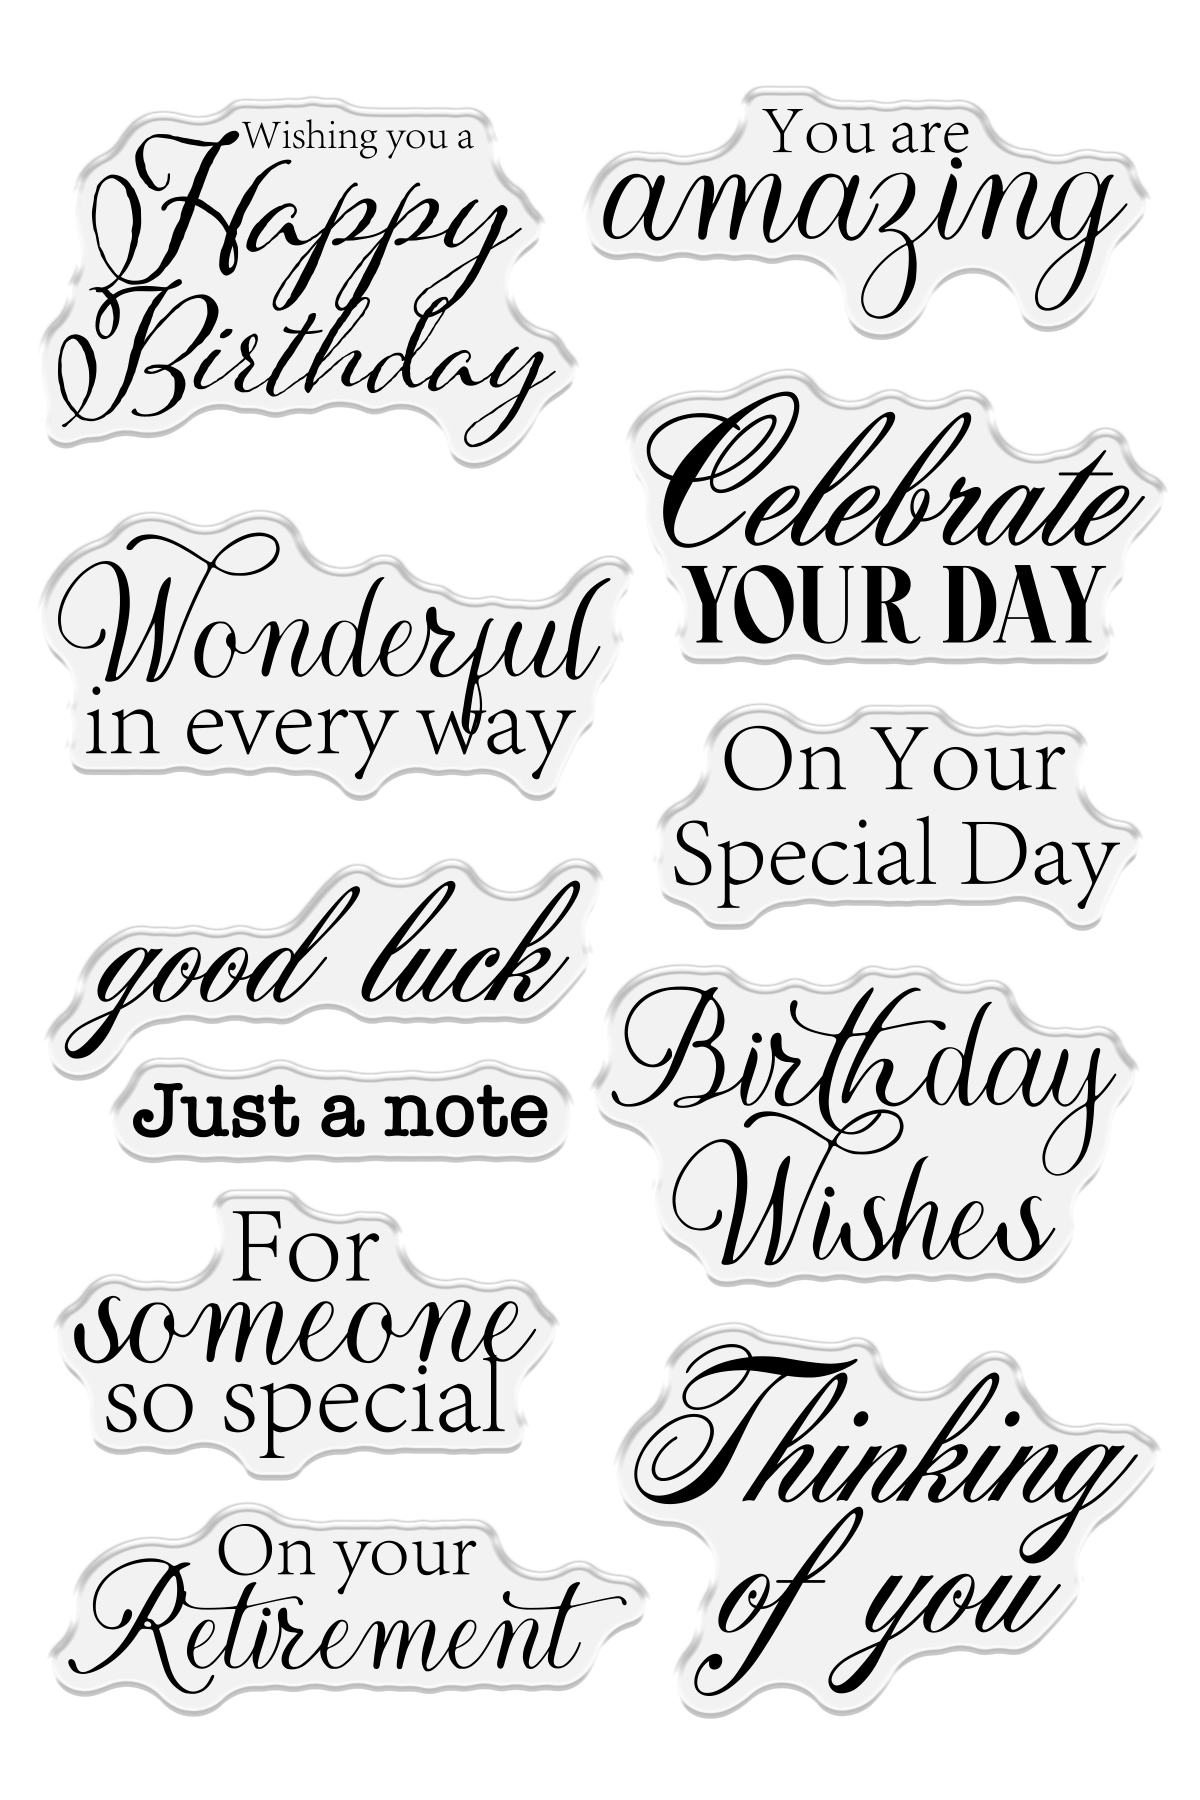 Wishing you a
Happy
Birthday
You are
amazing
Celebrate
YOUR DAY
Wonderful
in every way
On Your
Special Day
good luck
Just a note
Birthday
Wishes
For
someone
so special
Thinking
of you
On your
Retirement